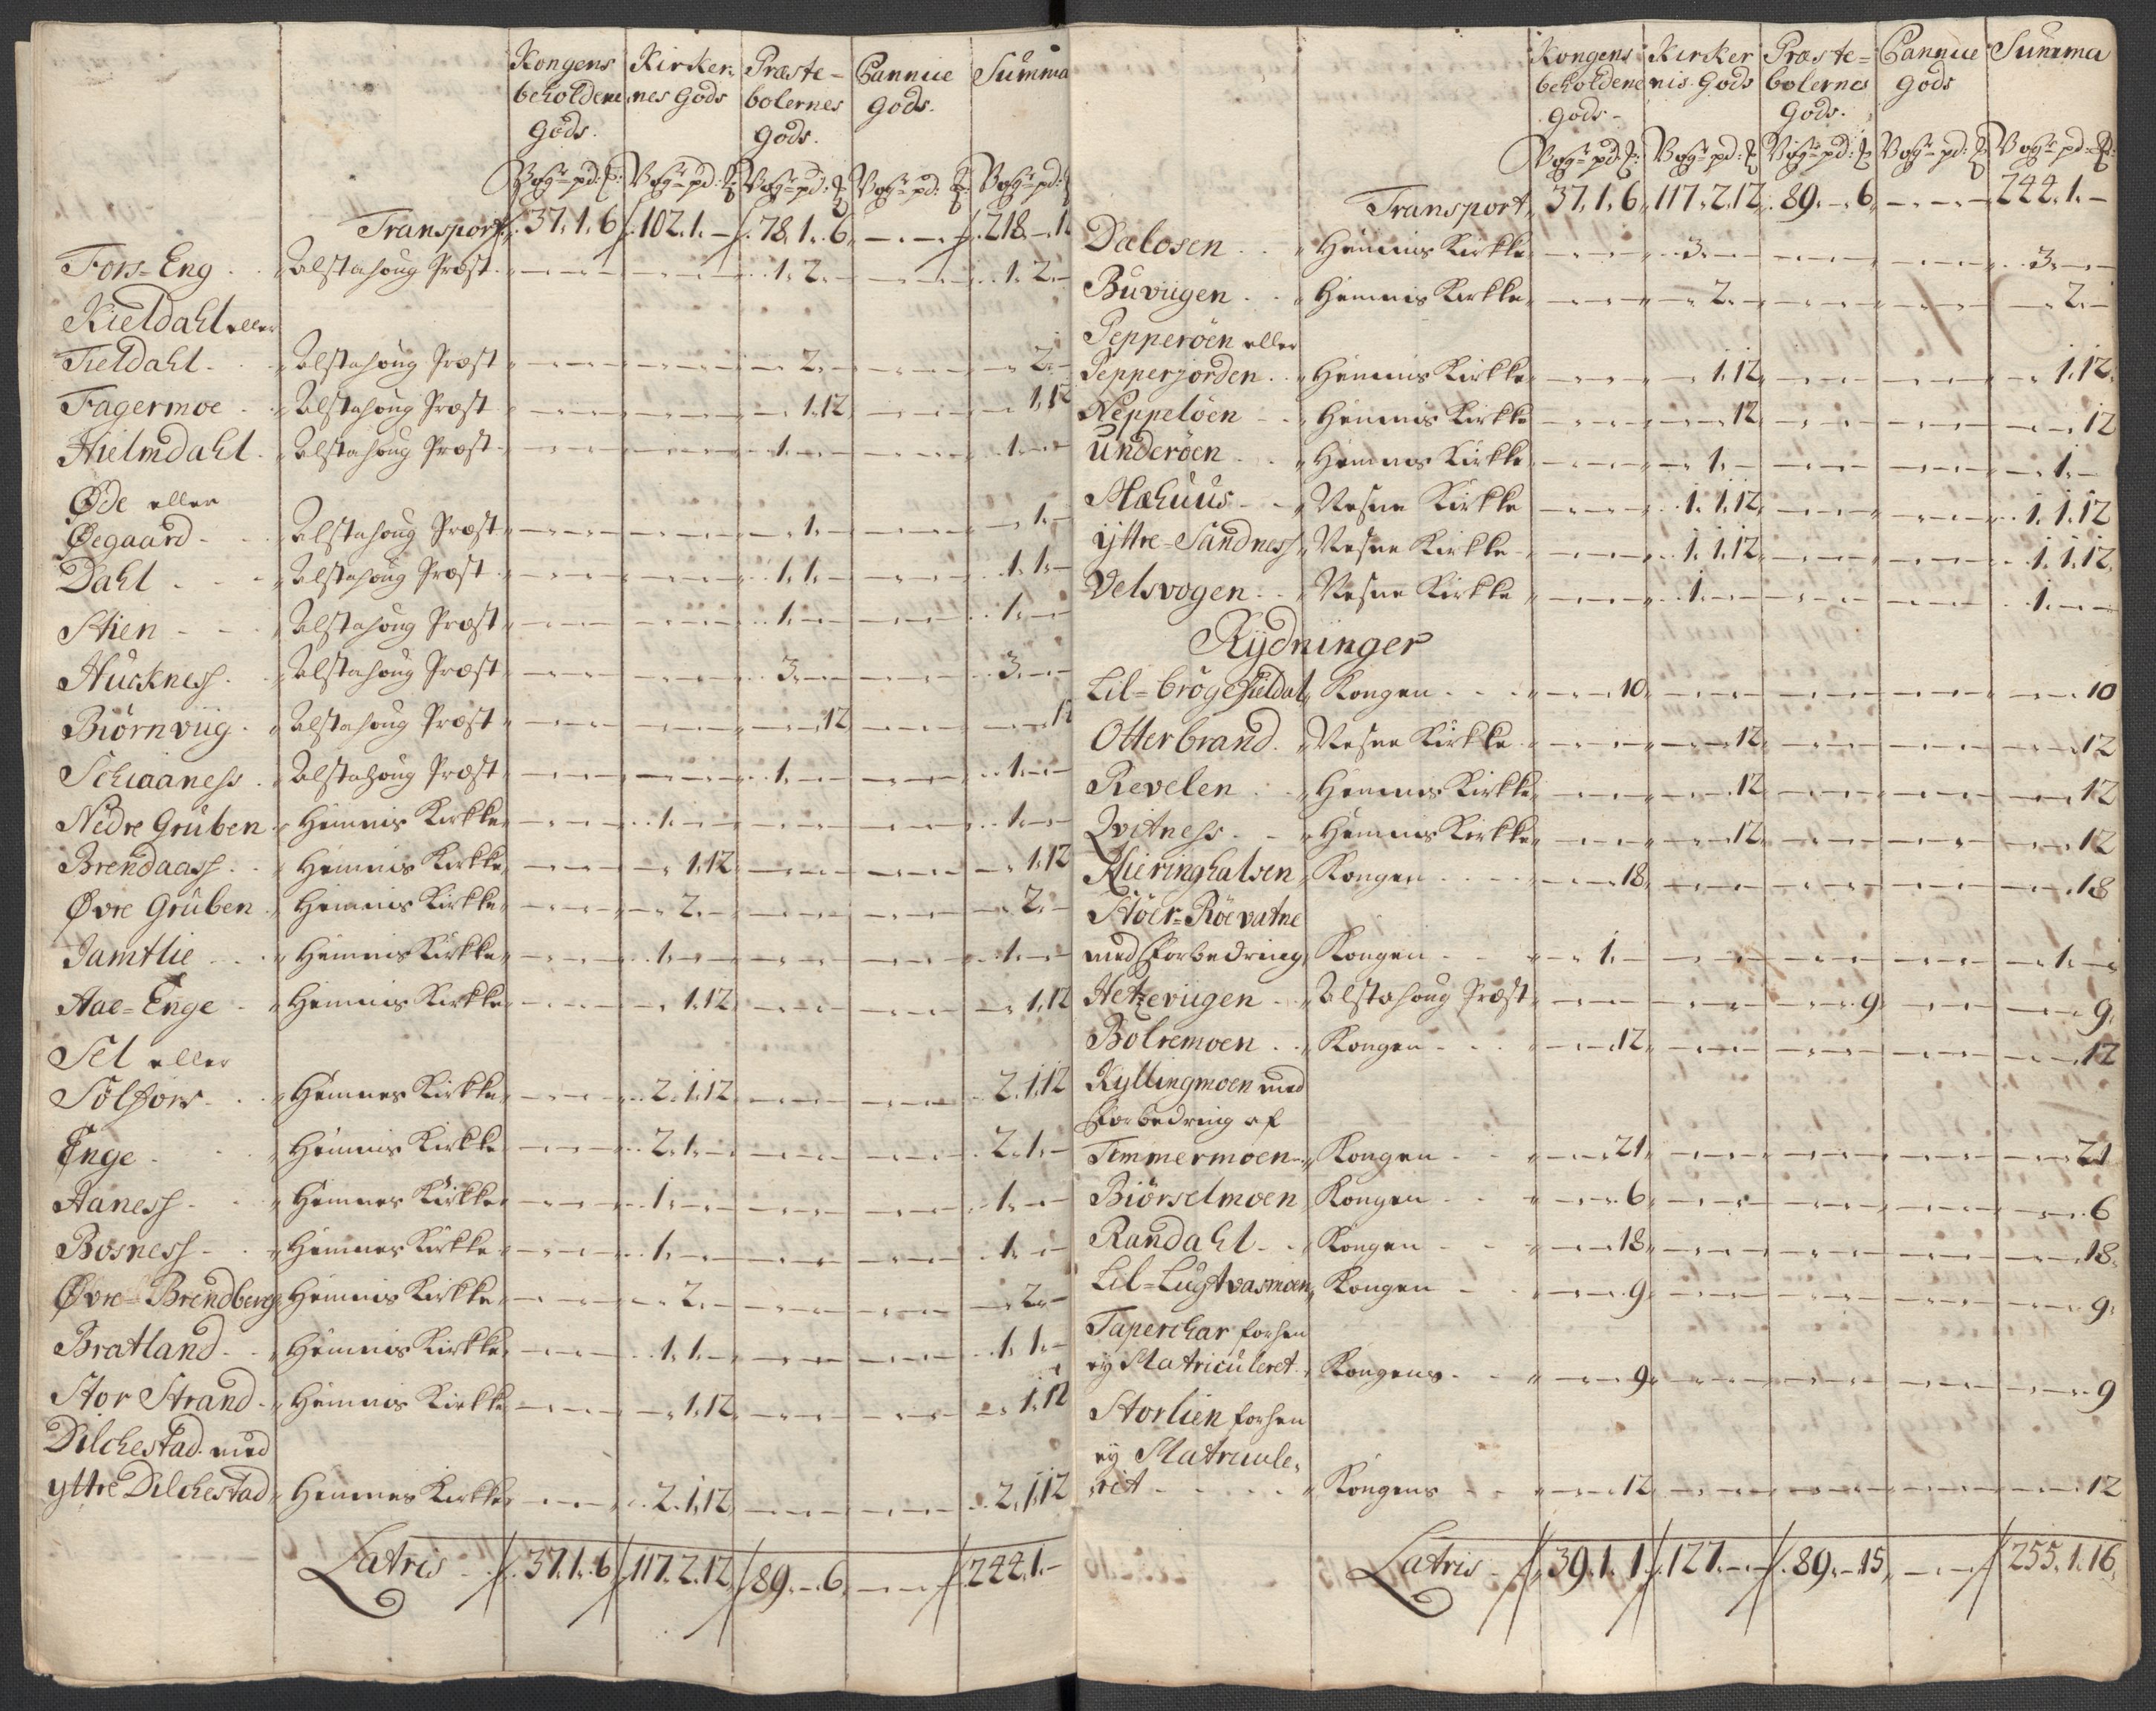 Kongens beholdene Gods. Kirkernes Gods Præstebolernes Gods. Cannice Gods. Summa
Vog: pd: Vog: pd: Vog: pd: Vog: pd: Vog: pd:
Transport 37. 1. 6 102. 1. - 78. 1. 6. - - - 218. - 1
Fors-Eng Alstahoug Præst - - - - - - 1. 2. - - - - 1. 2. -
Kieldahl eller
Fieldahl Alstahoug Præst - - - - - - - 2. - - - - - 2. -
Fagermoe Alstahoug Præst - - - - - - - 1. 12 - - - - 1. 12
Hielmdahl Alstahoug Præst - - - - - - 1. - - - - - 1. - -
Øde eller
Øegaard Alstahoug Præst - - - - - - - 1. - - - - - 1. -
Dahl Alstahoug Præst - - - - - - 1. 1. - - - - 1. 1. -
Stien Alstahoug Præst - - - - - - 1. - - - - - 1. - -
Huckness Alstahoug Præst - - - - - - 3. - - - - - 3. - -
Biörnviig Alstahoug Præst - - - - - - - - 12 - - - - - 12
Schiaaness Alstahoug Præst - - - - - - 1. - - - - - 1. - -
Nedre Gruben Hemnis Kirkke - - - 1. - - - - - - - - 1. - -
Brendaass Hemnis Kirkke - - - - 1. 12 - - - - - - - 1. 12
Øvre Gruben Hemnis Kirkke - - - - 2. - - - - - - - - 2. -
Jamtlie Hemnis Kirkke - - - 1. - - - - - - - - 1. - -
Aae-Enge Hemnis Kirkke - - - - 1. 12 - - - - - - - 1. 12
Sel eller
Sölfors Hemnes Kirkke - - - 2. 1. 12 - - - - - - 2. 1. 12
Enge Hemnis Kirkke - - - 2. 1. - - - - - - - 2. 1. -
Aaness Hemnes Kirkke - - - 1. - - - - - - - - 1. - -
Bosness Hemnes Kirkke - - - 1. - - - - - - - - 1. - -
Øvre-Brendberg Hemnis Kirkke - - - - 2. - - - - - - - - 2. -
Bratland Hemnis Kirkke - - - 1. 1. - - - - - - - 1. 1. -
Stor Strand Hemnis Kirkke - - - - 1. 12 - - - - - - - 1. 12
Dilchestad med
yttre Dilchestad Hemnes Kirkke - - - 2. 1. 12 - - - - - - 2. 1. 12
Latris 37. 1. 6 117. 2. 12 89. - 6 - - - 242. 1. -
Kongens beholdene Gods Kirkernis Gods Præstebolernes Gods. Cannice Gods Summa
Vog: pd: Vog: pd: Vog: pd: Vog: pd: Vog: pd:
Transport 37. 1. 6 117. 2. 12 89. - 6 - - - 244. 1. -
Dalosen Hemnis Kirkke - - - 3. - - - - - - - - 3. - -
Buviigen Hemnis Kirkke - - - - 2. - - - - - - - - 2. -
Pepperöen eller
Pepperjorden Hemnis Kirkke - - - - 1. 12 - - - - - - - 1. 12
Neppelöen Hemnis Kirkke - - - - - 12 - - - - - - - - 12
Underöen Hemnes Kirkke - - - - 1. - - - - - - - - 1. -
Mæhuus Vesne Kirkke - - - 1. 1. 12 - - - - - - 1. 1. 12
Yttre-Sandness Vesne Kirkke - - - 1. 1. 12 - - - - - - 1. 1. 12
Velsvogen Vesne Kirkke - - - 1. - - - - - - - - 1. - -
Rydninger
Lil-brögefieldal Kongen - - 10 - - - - - - - - - - - 10
Otterbrand Vesne Kirkke - - - - - 12 - - - - - - - - 12
Revelen Hemnes Kirkke - - - - - 12 - - - - - - - - 12
Qvitness Hemnis Kirkke - - - - - 12 - - - - - - - - 12
Kieringhalsen Kongen - - 18 - - - - - - - - - - - 18
Stöer-Röevatne
med forbedring Kongen - 1. - - - - - - - - - - - 1. -
Hetzeviigen Alstahoug Præst - - - - - - - - 9 - - - - - 9
Bolremoen Kongen - - 12 - - - - - - - - - - - 12
Kyllingmoen med
forbedring af
Timmermoen Kongen - - 21 - - - - - - - - - - - 21
Biörselmoen Kongen - - 6 - - - - - - - - - - - 6
Randahl Kongen - - 18 - - - - - - - - - - - 18
Lil-Lugtvasmoen Kongen - - 9 - - - - - - - - - - - 9
Taperchar forhen
ey Matriculeret Kongens - - 9 - - - - - - - - - - - 9
Storlien forhen
ey Matricule-
ret Kongens - - 12 - - - - - - - - - - - 12
Latris 39. 1. 1 127. - - 89. - 15 - - - 255. 1. 16